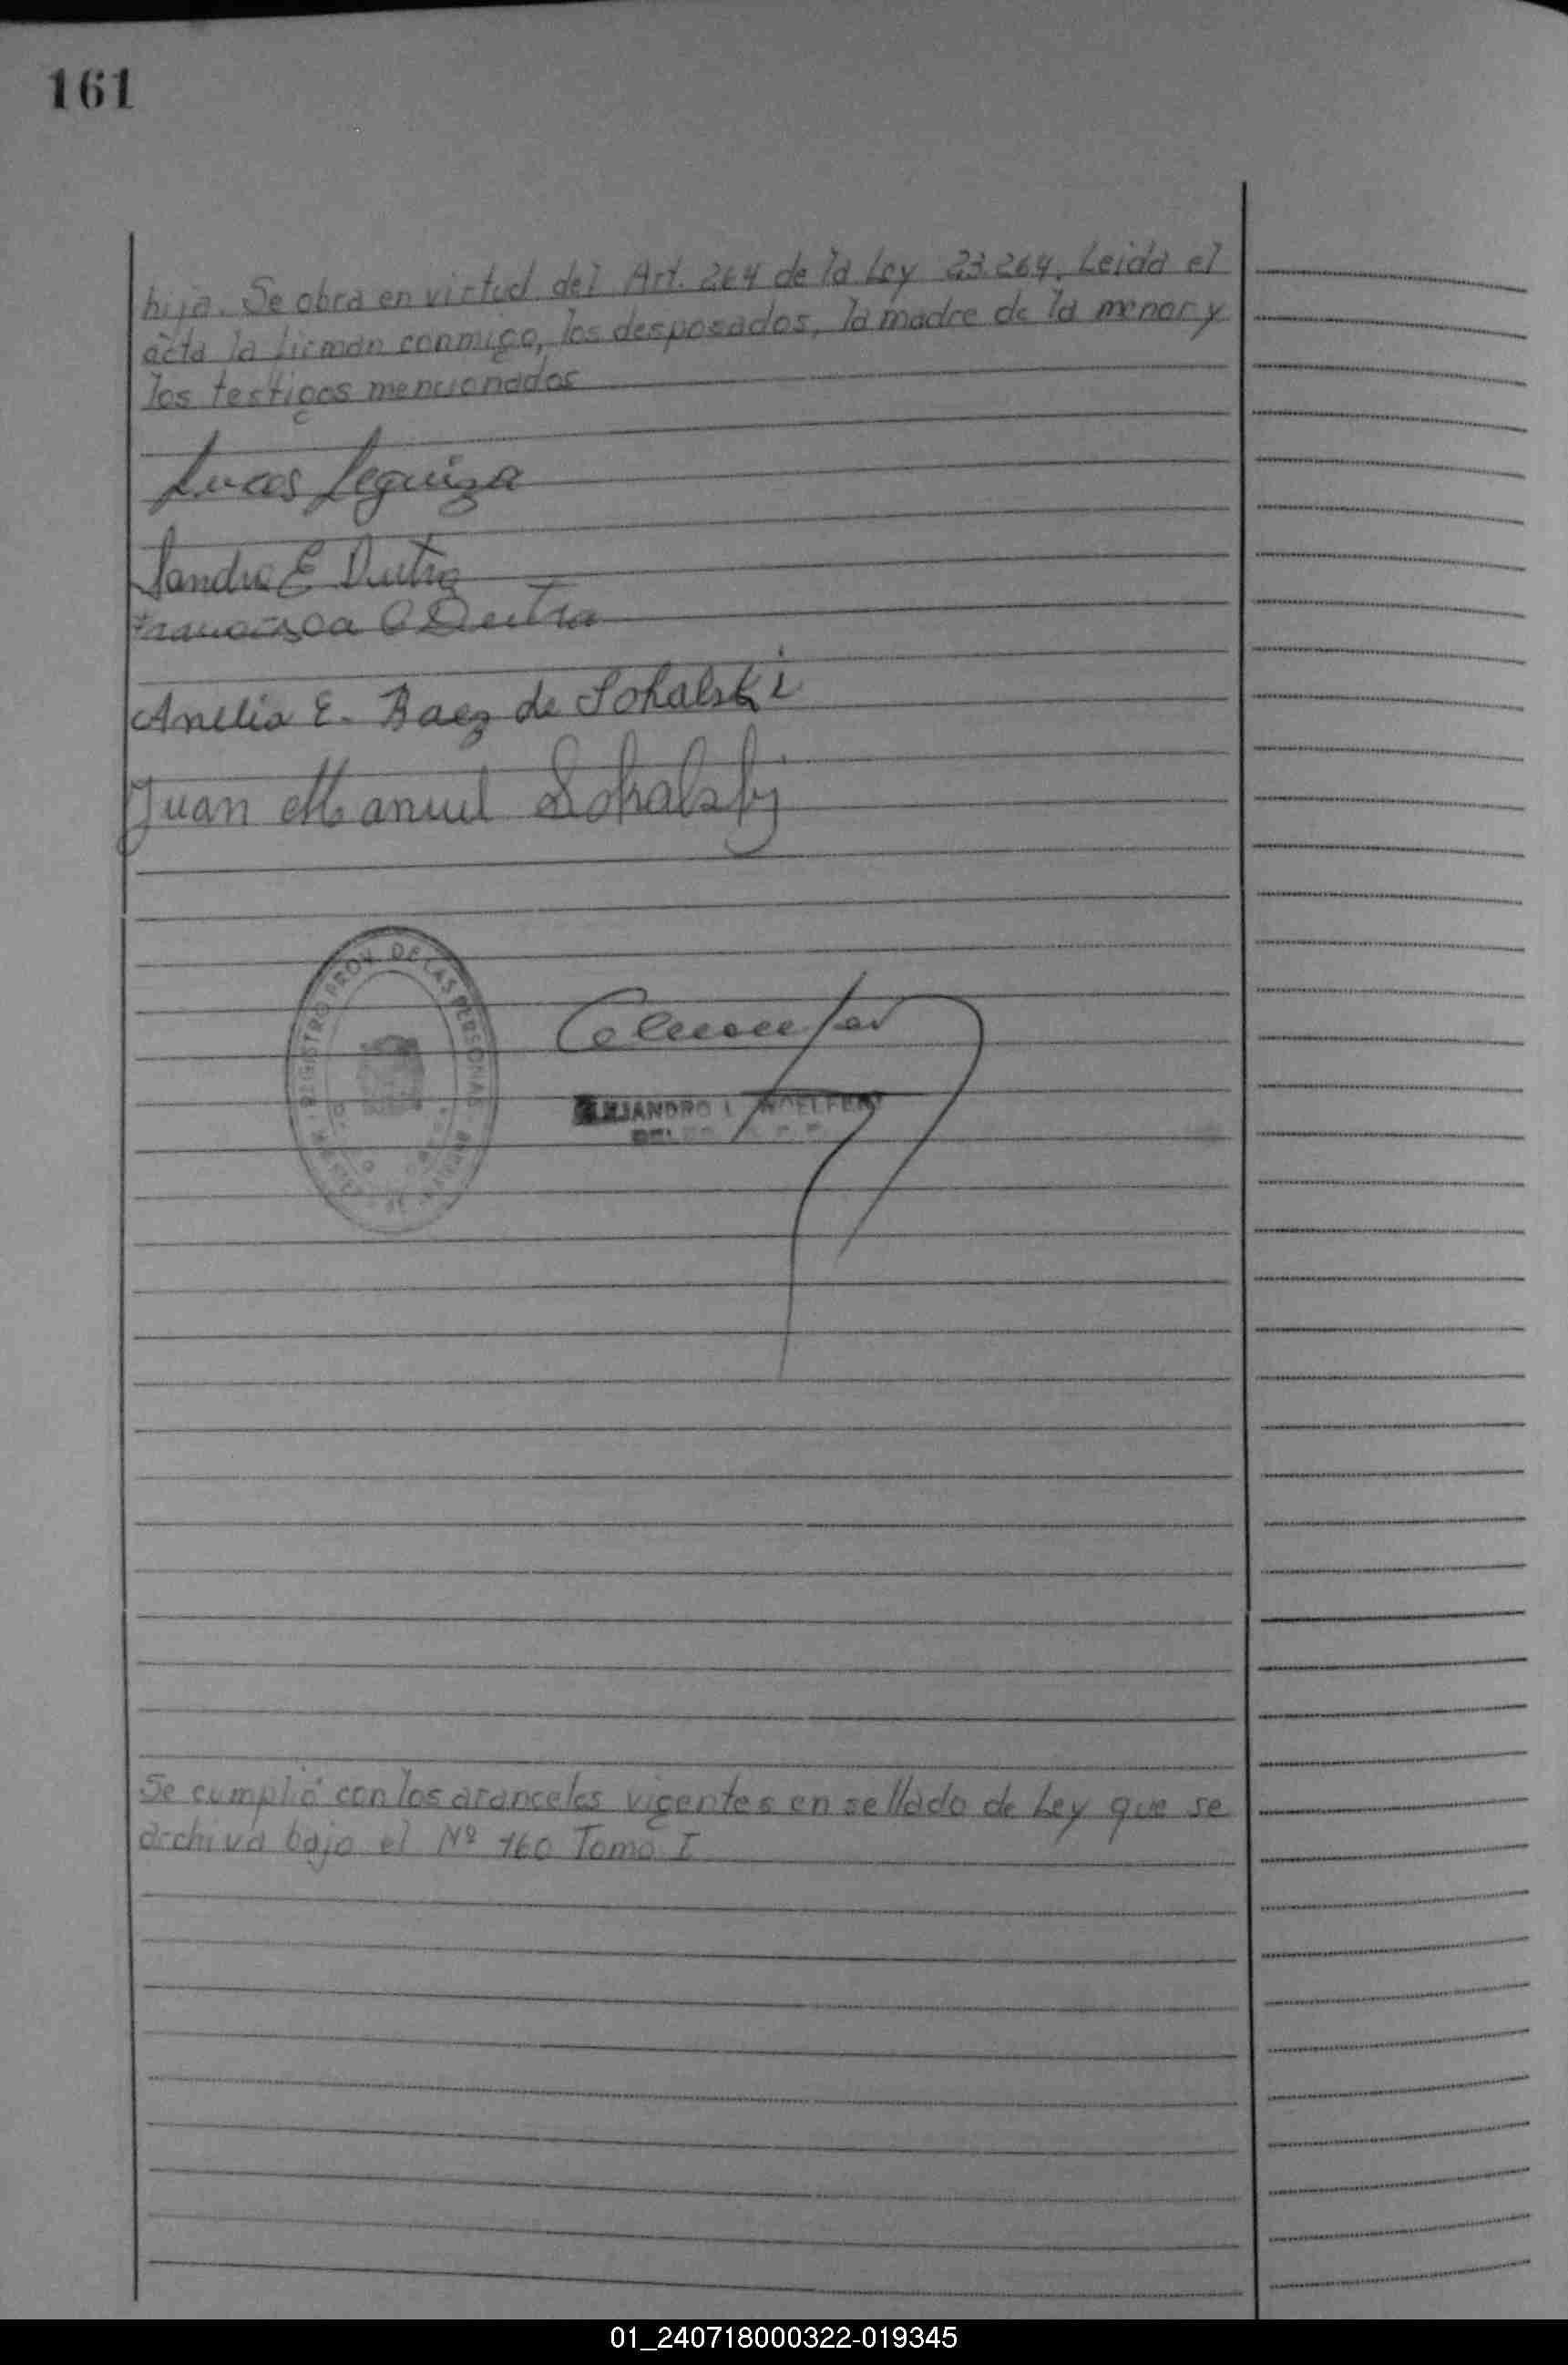 161
hija. Se obra en virtud del Art. 264 de la Ley 23.264. Leida el
acta la firman conmigo, los desposados, la madre de la menor y
los testigos mencionados
Lucas Leguiza
Sandra E Dutra
Francisca O Deutra
Anelia E. Baez de Sokalski
Juan Manuel Sokalski
REGISTRO PROV. DE LAS PERSONAS
ALEJANDRO L. WOELFERT
Se cumplió con los aranceles vigentes en sellado de Ley que se
archiva bajo el Nº 160 Tomo I
01_240718000322-019345